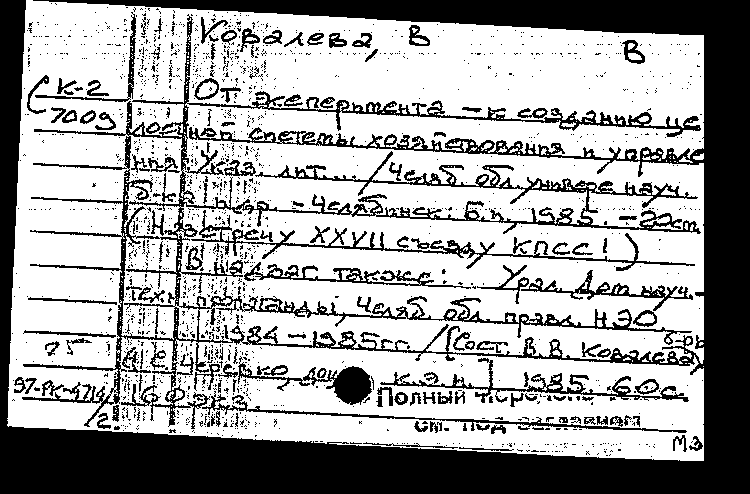 Ковалева, В
В
К-2
7009
От эксперимента – к созданию це
лостной системы хозяйствования и управле
ния: Указ. лит... / Челяб. обл. универс науч.
б-ка и др. – Челябинск: Б.и., 1985. – 20см
(Навстречу XXVII съезду КПСС!)
В надзаг. также: Урал. Дом науч.-
техн. пропаганды, Челяб. обл. правл. НЭО.
1984 – 1985гг. / [Сост. В.В. Ковалева,
75
А.С. Черевко, к.э.н.] 1985. 60с.
97-РК-4714/2.
160 экз.
Полный перечень
см. под заглавием
МЭ